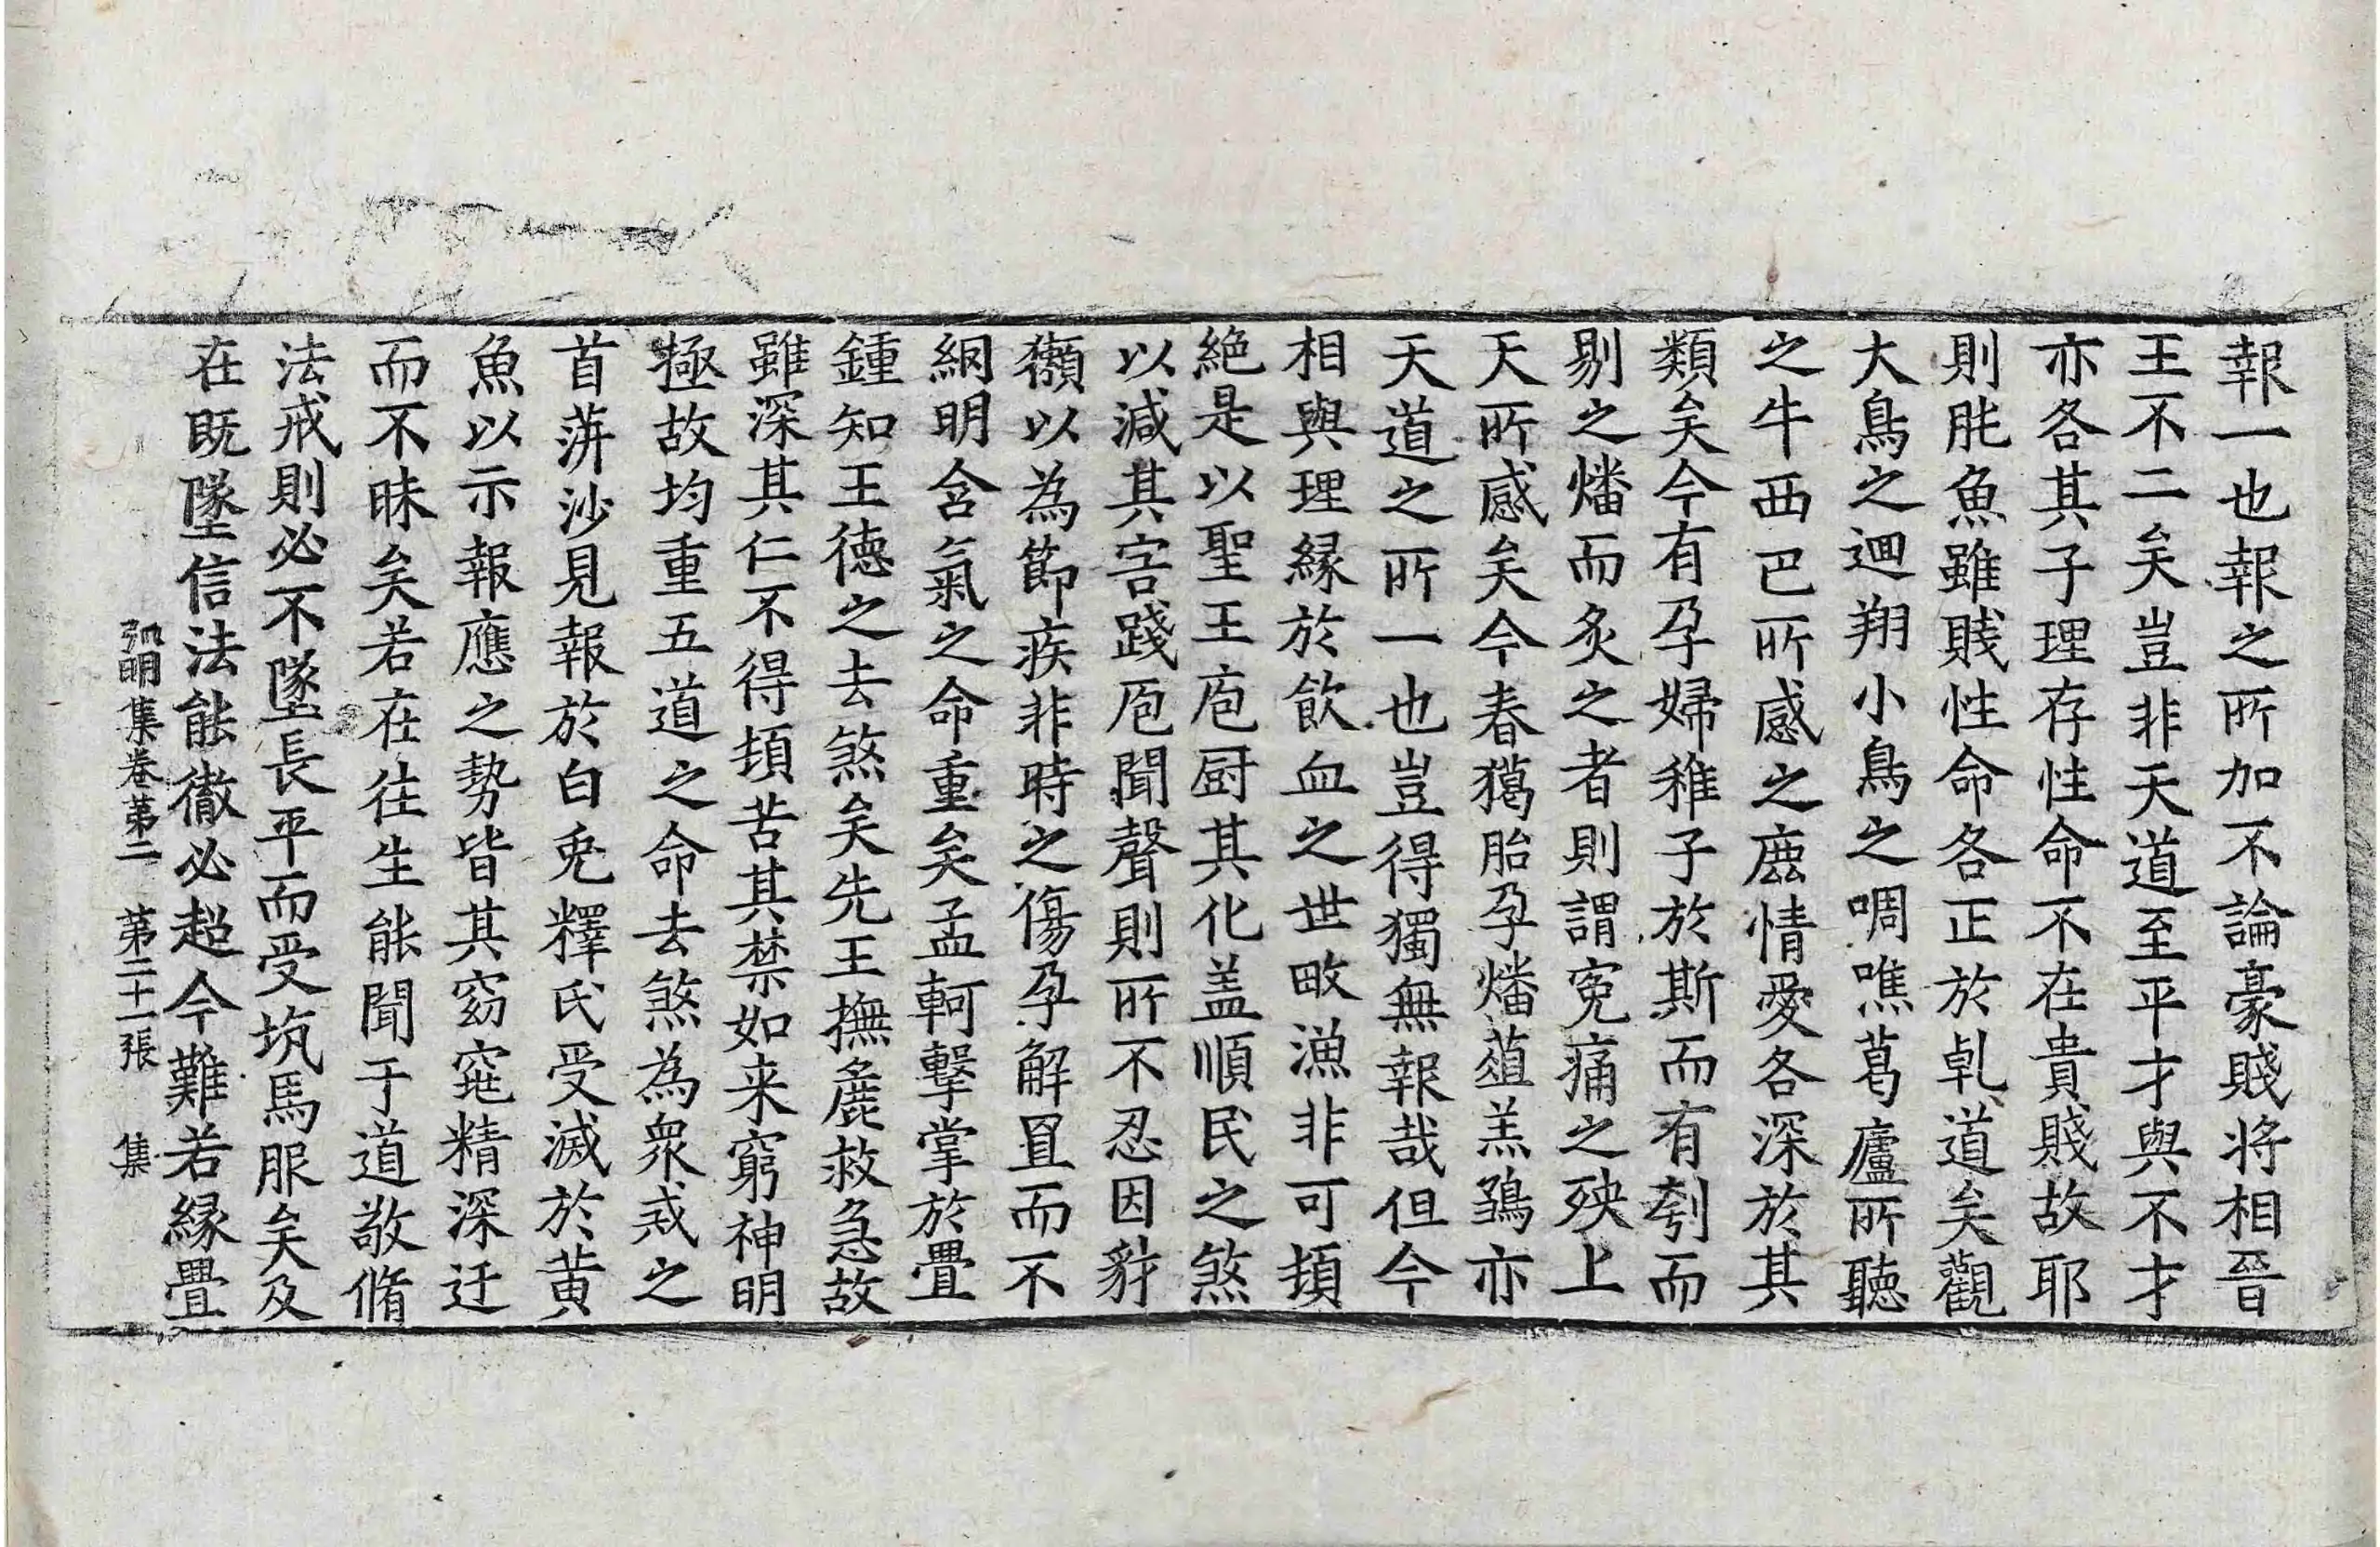 報一也報之所加不論豪賤将相晉
王不二矣豈非天道至平才與不才
亦各其子理存性命不在貴賤故耶
則肫魚雖賤性命各正於乹道矣觀
大鳥之迴翔小鳥之啁噍葛廬所聽
之牛西巴所感之鹿情愛各深於其
類矣今有孕婦稚子於斯而有刳而
剔之燔而炙之者則謂寃痛之殃上
天所感矣今春獦胎孕燔葅羔鵶亦
天道之所一也豈得獨無報哉但今
相與理緣於飲血之世畋漁非可頓
絶是以聖王庖厨其化盖順民之煞
以減其害踐庖聞聲則所不忍因豺
獺以為節疾非時之傷孕解罝而不
網明含氣之命重矣孟軻擊掌於疊
鍾知王德之去煞矣先王撫麁救急故
雖深其仁不得頓苦其禁如来窮神明
極故均重五道之命去煞為衆戒之
首蓱沙見報於白兎釋氏受滅於黄
魚以示報應之勢皆其窈窕精深迂
而不昧矣若在徃生能聞于道敬脩
法戒則必不墜長平而受坑馬服矣及
在既墜信法能徹必超今難若緣疊
弘明集卷第二　第二十一張　集